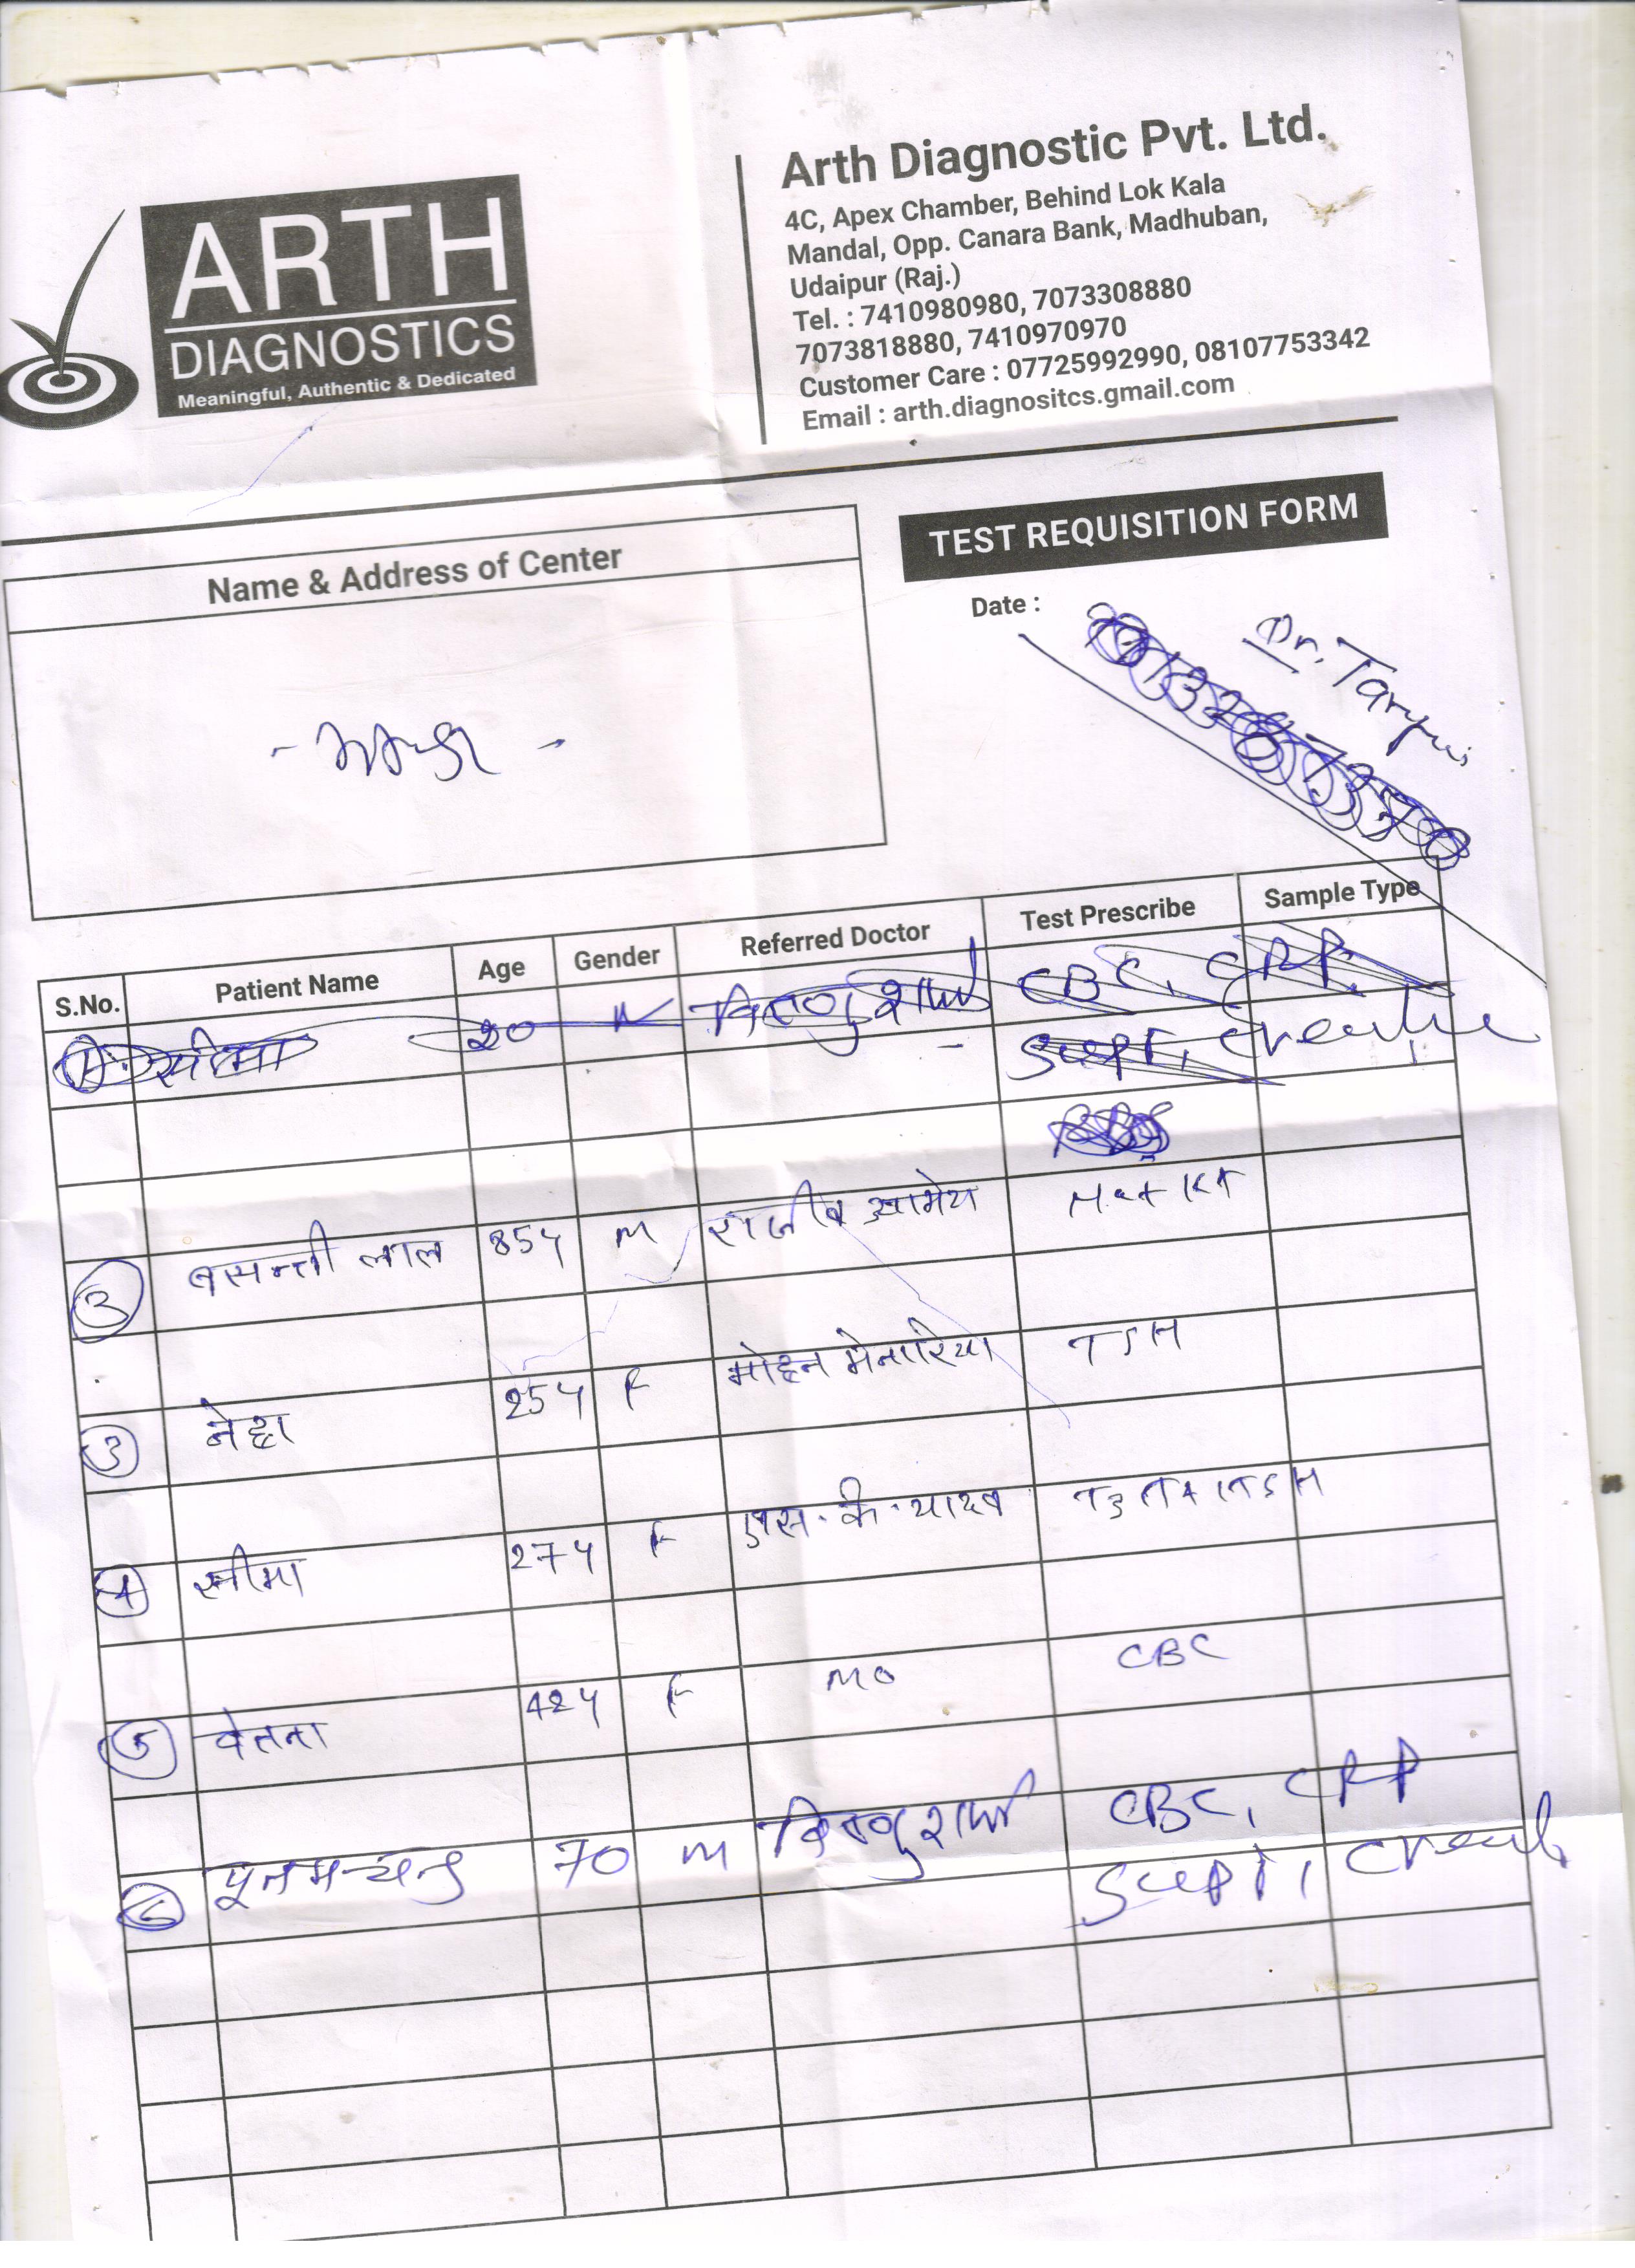 ARTH
DIAGNOSTICS
Meaningful, Authentic & Dedicated
Arth Diagnostic Pvt. Ltd.
4C, Apex Chamber, Behind Lok Kala
Mandal, Opp. Canara Bank, Madhuban,
Udaipur (Raj.)
Tel. : 7410980980, 7073308880
7073818880, 7410970970
Customer Care : 07725992990, 08107753342
Email : arth.diagnositcs.gmail.com
Name & Address of Center
TEST REQUISITION FORM
Date :
Dr.
S.No. Patient Name Age Gender Referred Doctor Test Prescribe Sample Type
1 सीमा 20 विष्णु शर्मा CBC, CRP,
2 बसन्ती लाल 85y M राजीव आमेय Na+ K+
3 नेहा 25y F मोहन मेनारिया TSH
4 सीमा 27y F एस. के. यादव T3 T4 TSH
5 चेतना 42y F MO CBC
6 पूनमचन्द 70 M विष्णु शर्मा CBC, CRP